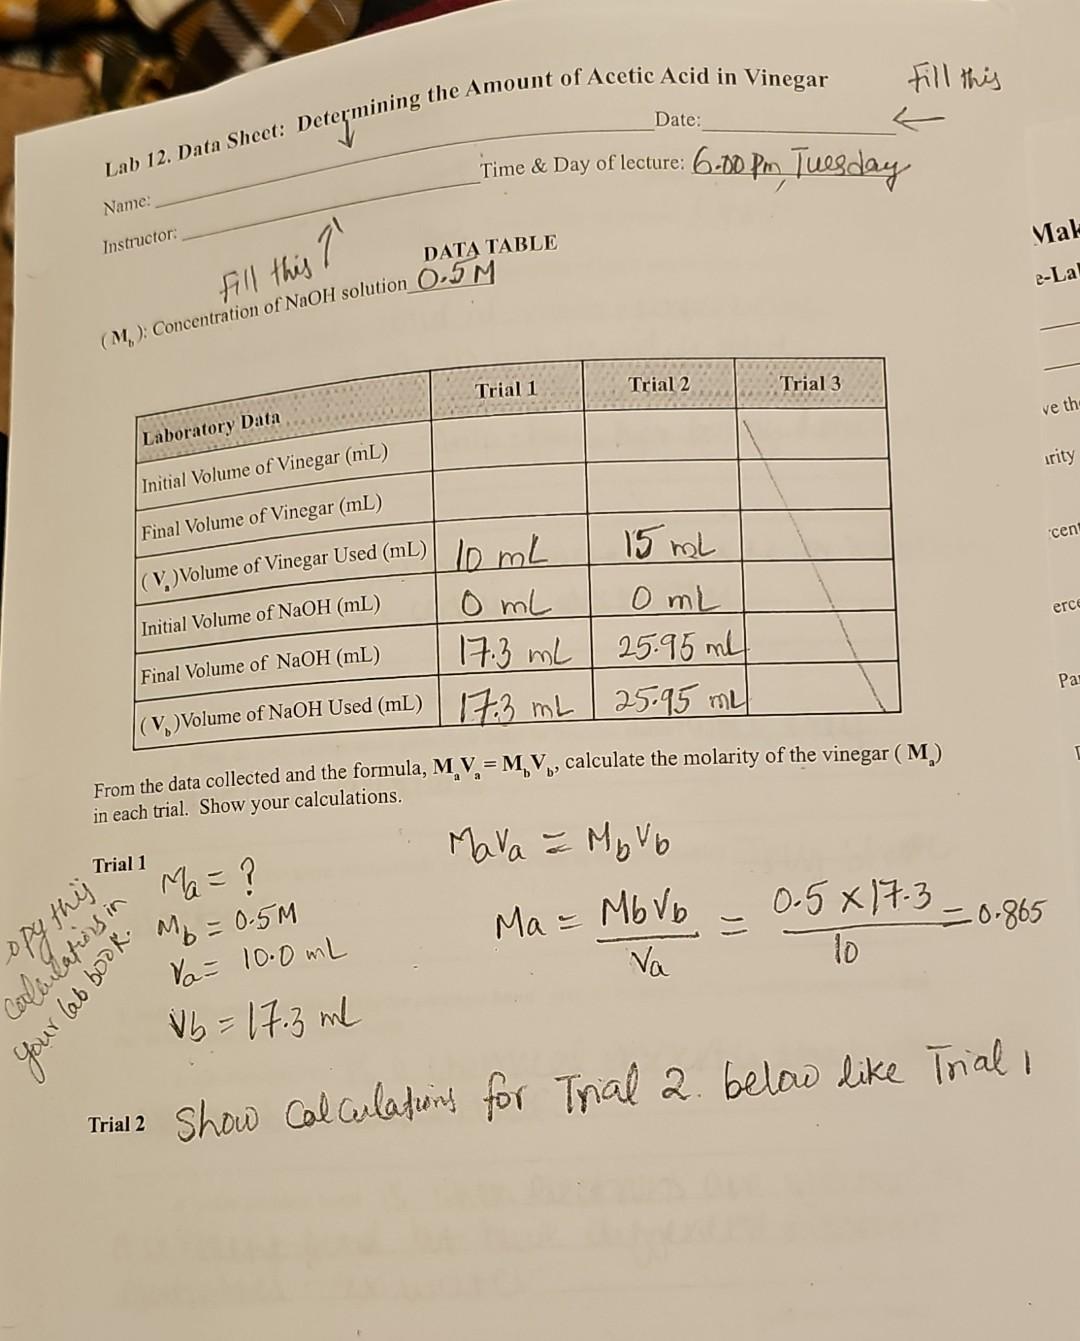 Lab 12. Data Sheet: Determining the Amount of Acetic Acid in Vinegar
Fill this
Name:
Date:
Instructor:
Time & Day of lecture: 6.00 Pm, Tuesday
Fill this
DATA TABLE
(Mb): Concentration of NaOH solution 0.5 M
Laboratory Data Trial 1 Trial 2 Trial 3
Initial Volume of Vinegar (mL)
Final Volume of Vinegar (mL)
(Va)Volume of Vinegar Used (mL) 10 mL 15 mL
Initial Volume of NaOH (mL) 0 mL 0 mL
Final Volume of NaOH (mL) 17.3 mL 25.95 mL
(Vb)Volume of NaOH Used (mL) 17.3 mL 25.95 mL
From the data collected and the formula, MaVa = MbVb, calculate the molarity of the vinegar (Ma)
in each trial. Show your calculations.
Trial 1
opy this
calculations in
your lab book.
Ma = ?
Mb = 0.5M
Va = 10.0 mL
Vb = 17.3 mL
MaVa = MbVb
Ma = MbVb / Va = 0.5 x 17.3 / 10 = 0.865
Trial 2 Show Calculations for Trial 2. below like Trial 1
Mak
e-La
ve th
urity
cent
erce
Pa